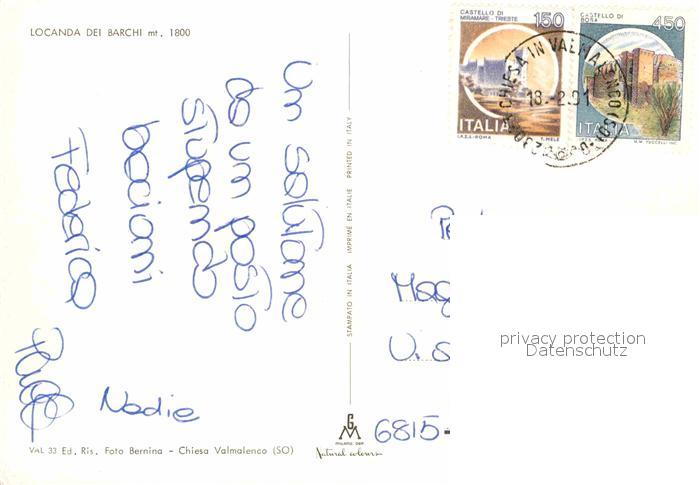 LOCANDA DEI BARCHI mt. 1800
CASTELLO DI
MIRAMARE - TRIESTE
150
ITALIA
I.P.Z.S. - ROMA
CASTELLO DI
BOSA
450
ITALIA
CHIESA IN VALMALENCO
18.2.91
Un salutone
da un posto
stupendo
bacioni
Federica
Nadia
STAMPATO IN ITALIA IMPRIMÉ EN ITALIE PRINTED IN ITALY
6815-
privacy protection
Datenschutz
VAL 33 Ed. Ris. Foto Bernina - Chiesa Valmalenco (SO)
Natural colours